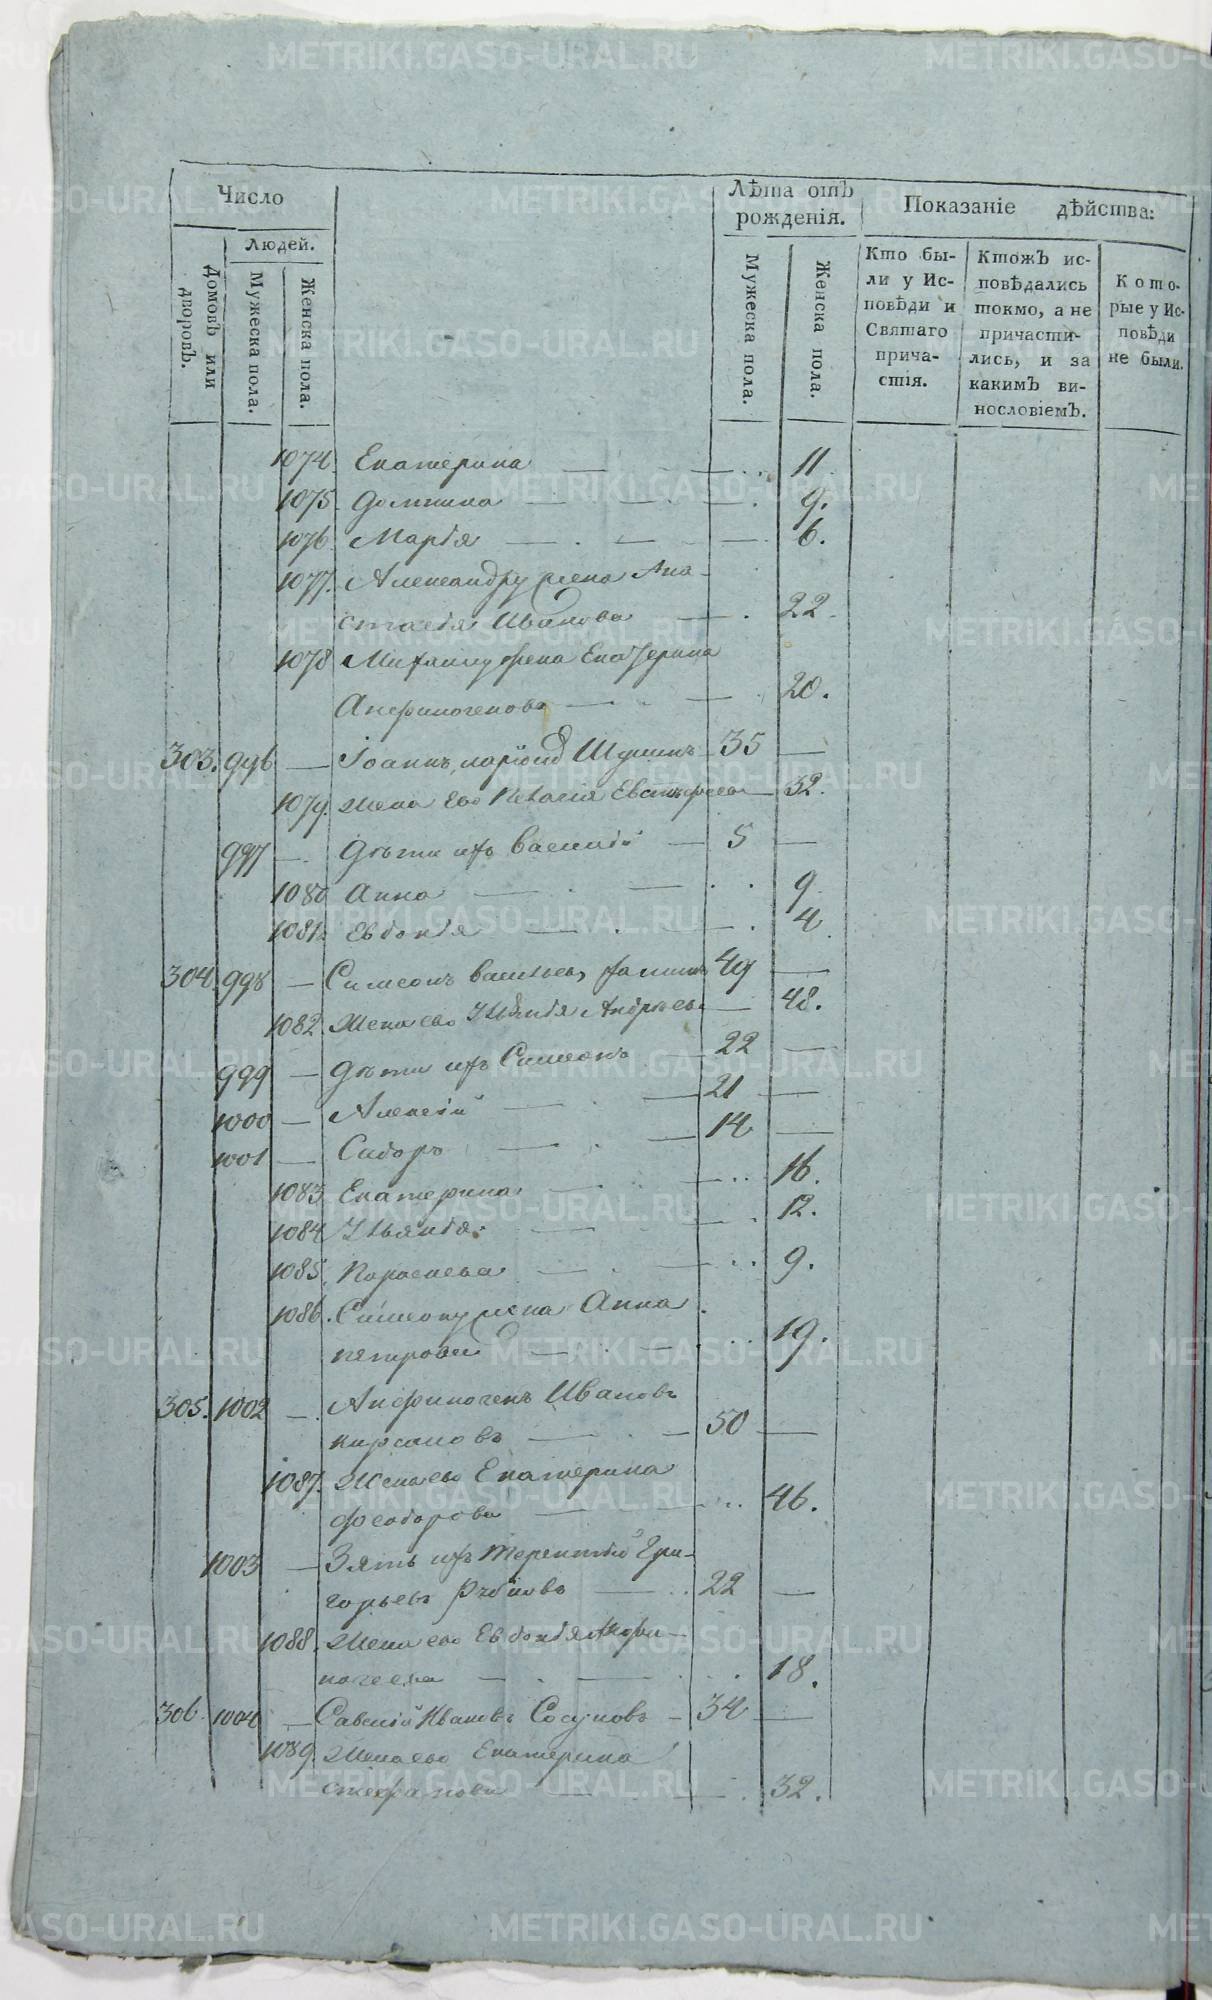 Число
Людей.
Домовъ или дворовъ.
Мужеска пола.
Женска пола.
Лѣта отъ рожденія.
Мужеска пола.
Женска пола.
Показаніе дѣйства:
Кто бы-
ли у Ис-
повѣди и
Святаго
прича-
стія.
Ктожъ ис-
повѣдались
токмо, а не
причасти-
лись, и за
какимъ ви-
нословіемъ.
Кото-
рые у Ис-
повѣди
не были.
1074 Екатерина 11
1075 Домнина 9.
1076 Марія 6.
1077. Александру жена Ана-
стасія Иванова 22.
1078 Михаилу жена Екатерина
Анфиногенова 20.
303. 996 — Іоаннъ Шушинъ 35 —
1079. Жена Его 32.
997 — Дѣти ихъ Василій 5 —
1080 Анна 9
1081 Евдокія 4
304. 998 — Симеонъ Васильевъ 49 —
1082 Жена его Ульянія Андреева 48.
999 — Дѣти ихъ Симеонъ 22 —
1000 — Алексій 21 —
1001 — Сидоръ 14 —
1083 Екатерина 16.
1084 Ульянія 12.
1085 Параскева 9.
1086. Симеону жена Анна
петрова 19.
305. 1002 — Анфиногенъ Ивановъ
кирсановъ 50 —
1087. Жена его Екатерина
феодорова 46.
1003 — Зять ихъ Терентій Гри-
горьевъ Рѣбковъ 22 —
1088. Жена его Евдокія Анфи-
ногена 18.
306. 1004 — Савелій Ивановъ Сосуновъ 34 —
1089. Жена его Екатерина
стефанова 32.
METRIKI.GASO-URAL.RU